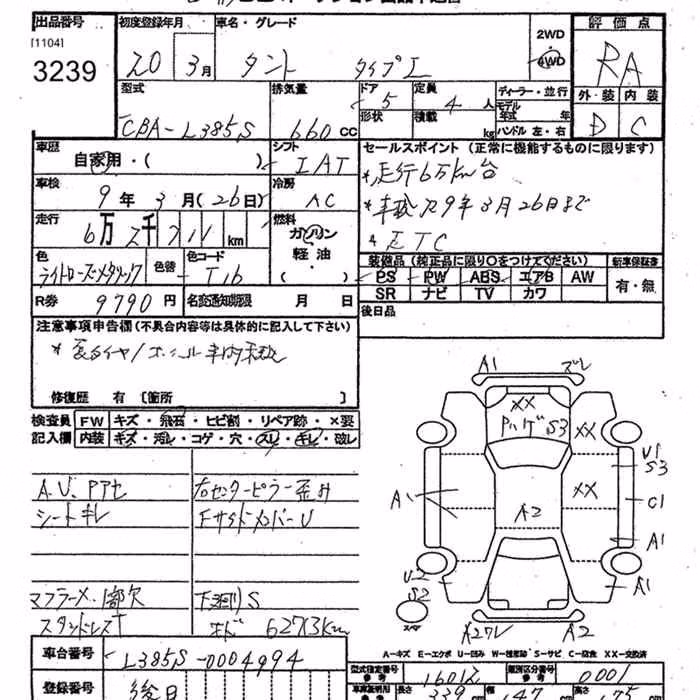 出品番号 初度登録年月 車名・グレード
[1104]
3239
20 3月 タント タイプI
2WD
4WD
評価点
RA
外・装 内装
D C
型式 排気量 ドア 定員 ディーラー・並行
CBA-L385S 660 CC 5 4 人
モデル年式 年
形状 積載 kg ハンドル 左・右
車歴 シフト セールスポイント (正常に機能するものに限ります)
自家用・( ) IAT *走行6万km台
車検 冷房
9年 3月(26日) AC *車検R9年3月26日まで
走行 燃料
6万 2千 711 km ガソリン *ETC
軽油
( )
色 色替 色コード
ライトローズメタリック T16
装備品 (純正品に限り○をつけてください) 新車保証書
PS PW ABS エアB AW 有・無
SR ナビ TV カワ
R券 9790円 名変通知期限 月 日
後日品
注意事項申告欄(不具合内容等は具体的に記入して下さい)
修復歴 有 [箇所 ]
検査員 FW キズ・飛石・ヒビ割・リペア跡・×要
記入欄 内装 キズ・汚レ・コゲ・穴・スレ・キレ・破レ
A1 ズレ
XX
Pハゲ S3 XX
U1
S3
A1 XX C1
A2
A1
U2
S2 A1
スペア
A2ワレ A2
A.V、PT欠 右センターピラー歪み
シートキレ FサイドメンバーU
マフラーメ、1部欠 下廻りS
スタンドレス十 オド 62713km
A-キズ E-エクボ U-凹み W-補修跡 S-サビ C-腐食 XX-交換済
車台番号 L385S-0004994
型式指定番号 参考 16012 類別区分番号 参考 0001
登録番号 後日
車庫証明用 参考 長さ 339 cm 幅 147 cm 高さ 175 cm